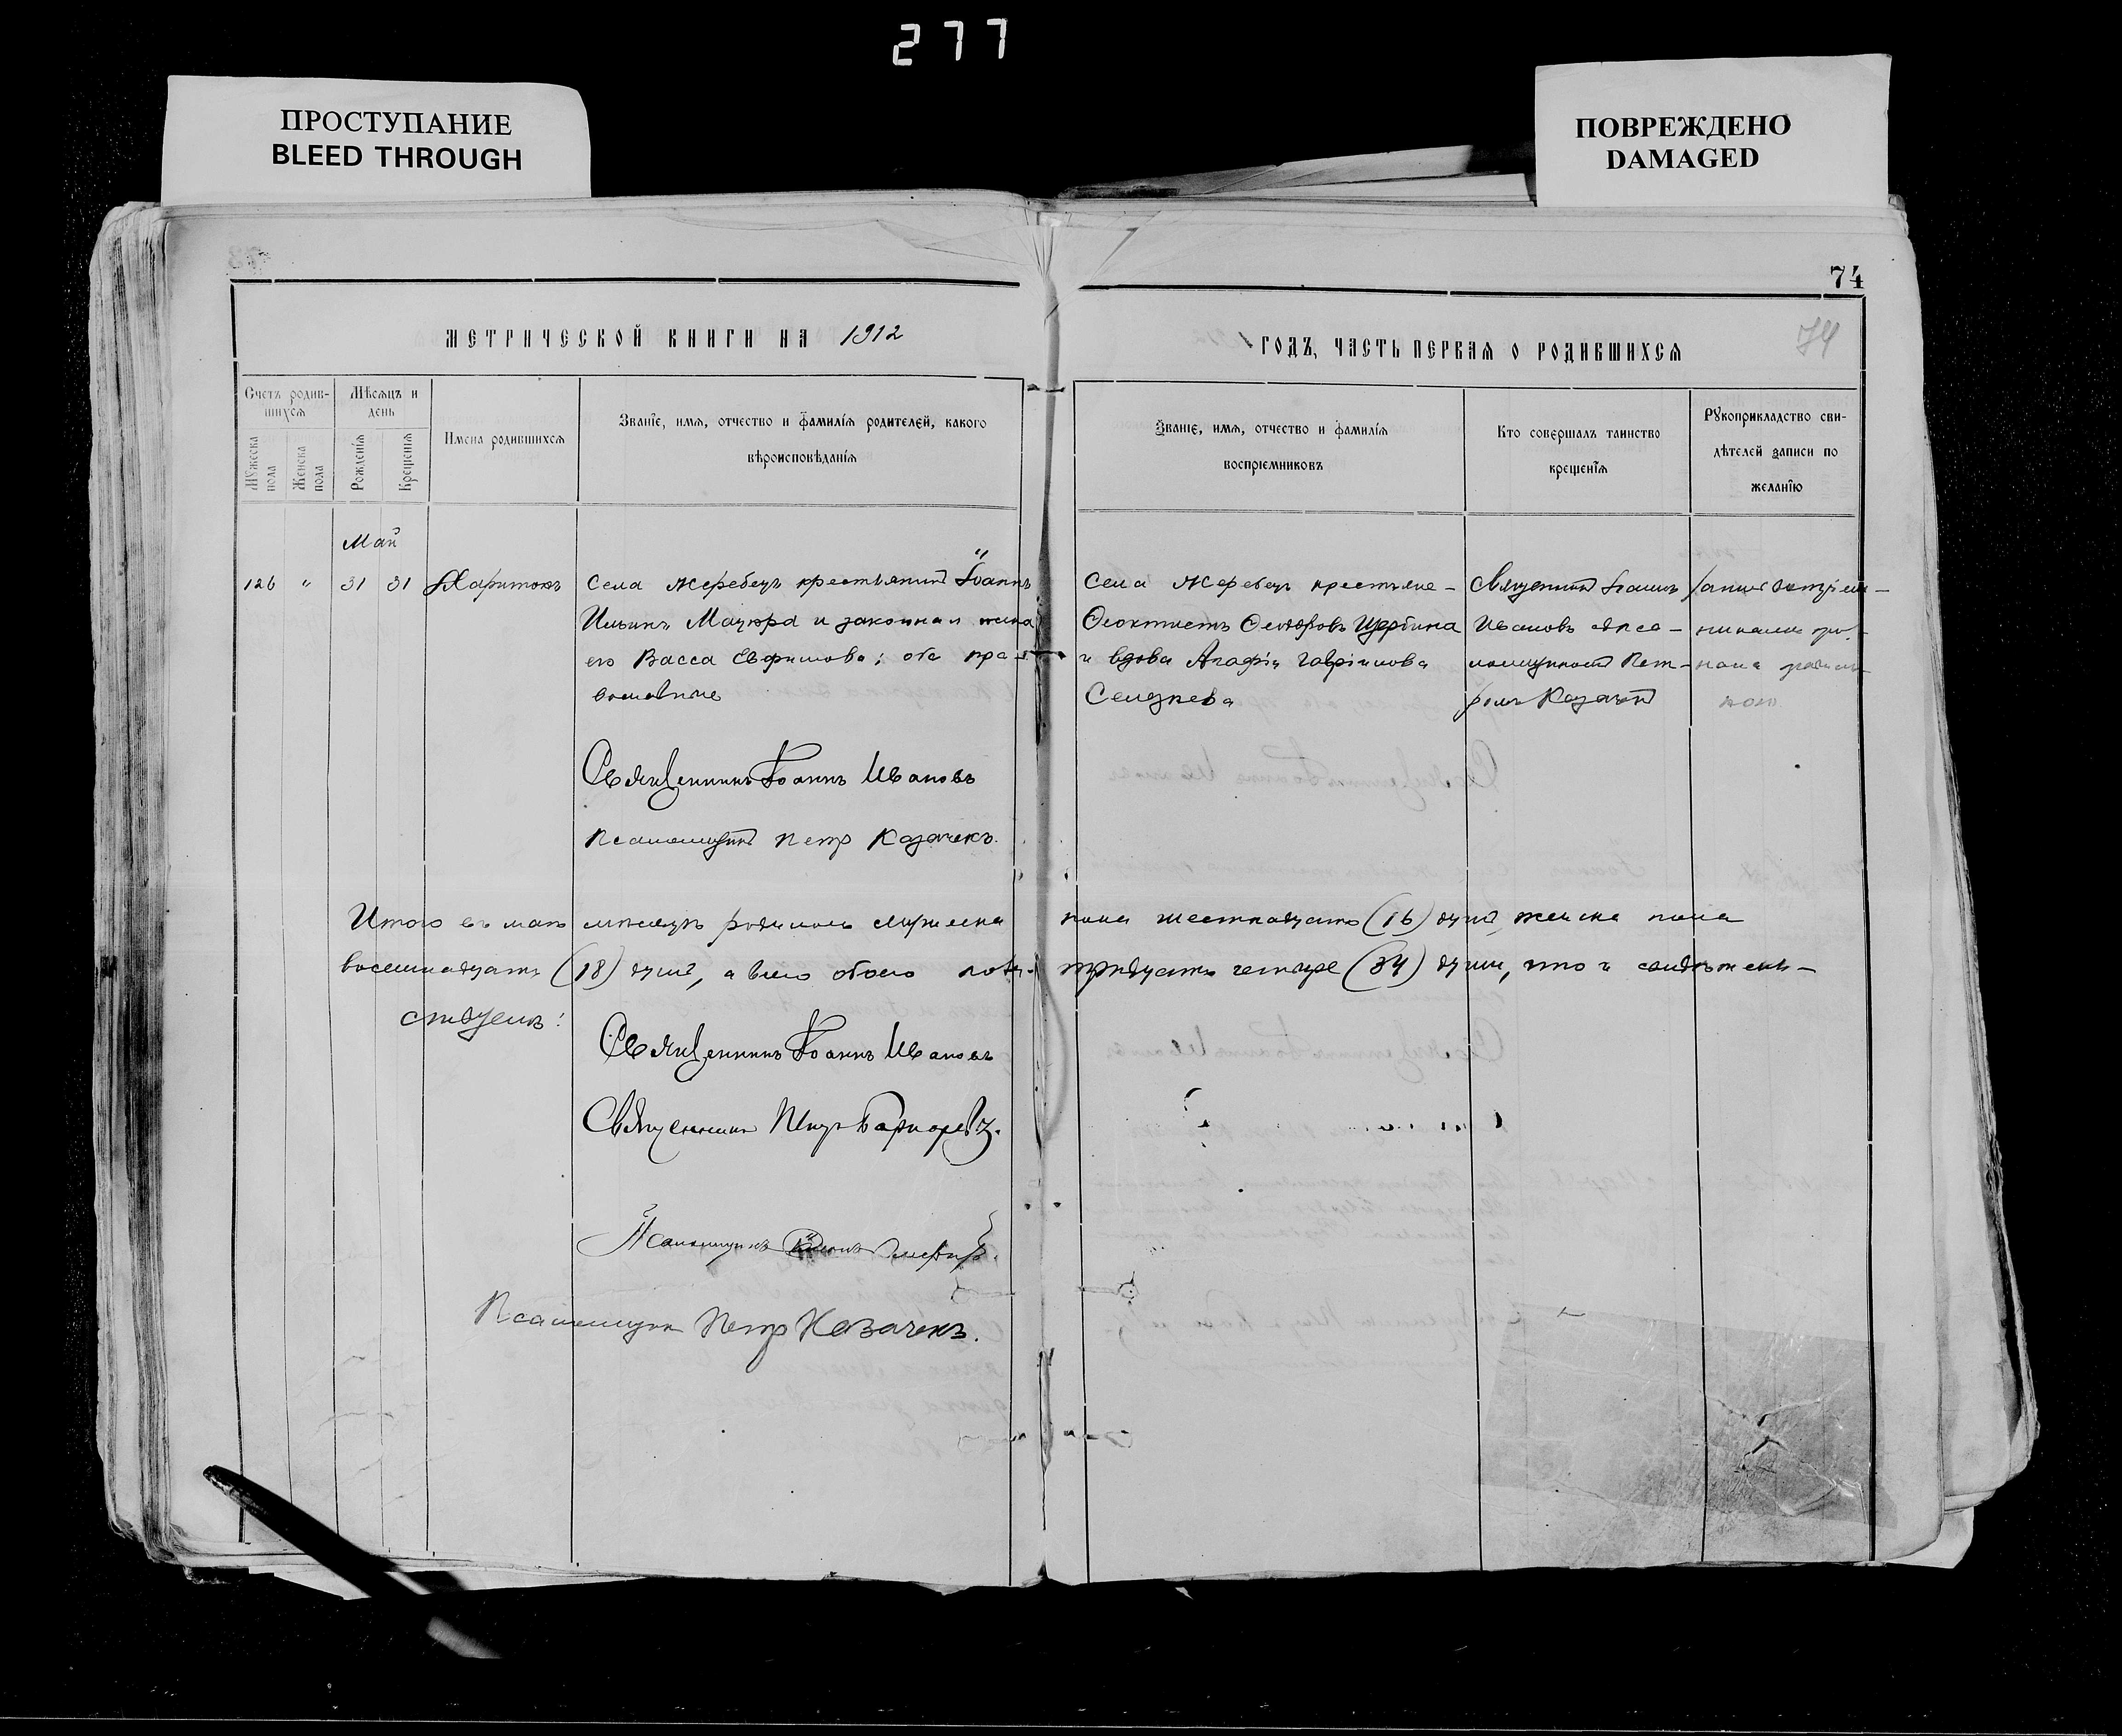 277
ПРОСТУПАНИЕ
BLEED THROUGH
ПОВРЕЖДЕНО
DAMAGED
74
МЕТРИЧЕСКОЙ КНИГИ НА 1912
ГОДЪ, ЧАСТЬ ПЕРВАЯ О РОДИВШИХСЯ
74
Счетъ родив-
шихся
Мѣсяцъ и
день
Мужеска
пола
Женска
пола
Рожденія
Крещенія
Имена родившихся
Званіе, имя, отчество и фамилія родителей, какого
вѣроисповѣданія
Званіе, имя, отчество и фамилія
воспріемниковъ
Кто совершалъ таинство
крещенія
Рукоприкладство сви-
дѣтелей записи по
желанію
Май
126 " 31 31 Харитонъ
Села Жеребецъ крестьянинъ Іоаннъ
Ильинъ Мацюра и законная жена
его Васса Евфимова; оба пра-
вославные
Села Жеребецъ крестьяне-
Феоктистъ Феодоровъ Щербина
и вдова Агафія Гавріилова
Селезнева
Священникъ Іоаннъ
Ивановъ съ пса-
ломщикомъ Пет-
ромъ Казачекъ
Священникъ Іоаннъ Ивановъ
Псаломщикъ Петръ Казачекъ.
Итого въ маѣ мѣсяцѣ родилось мужеска
пола шестнадцать (16) душъ, женска пола
восемнадцать (18) душъ, а всего обоего пола
тридцать четыре (34) души, что и свидѣтель-
ствуемъ:
Священникъ Іоаннъ Ивановъ
Священникъ
Псаломщикъ
Псаломщикъ Петръ Казачекъ.